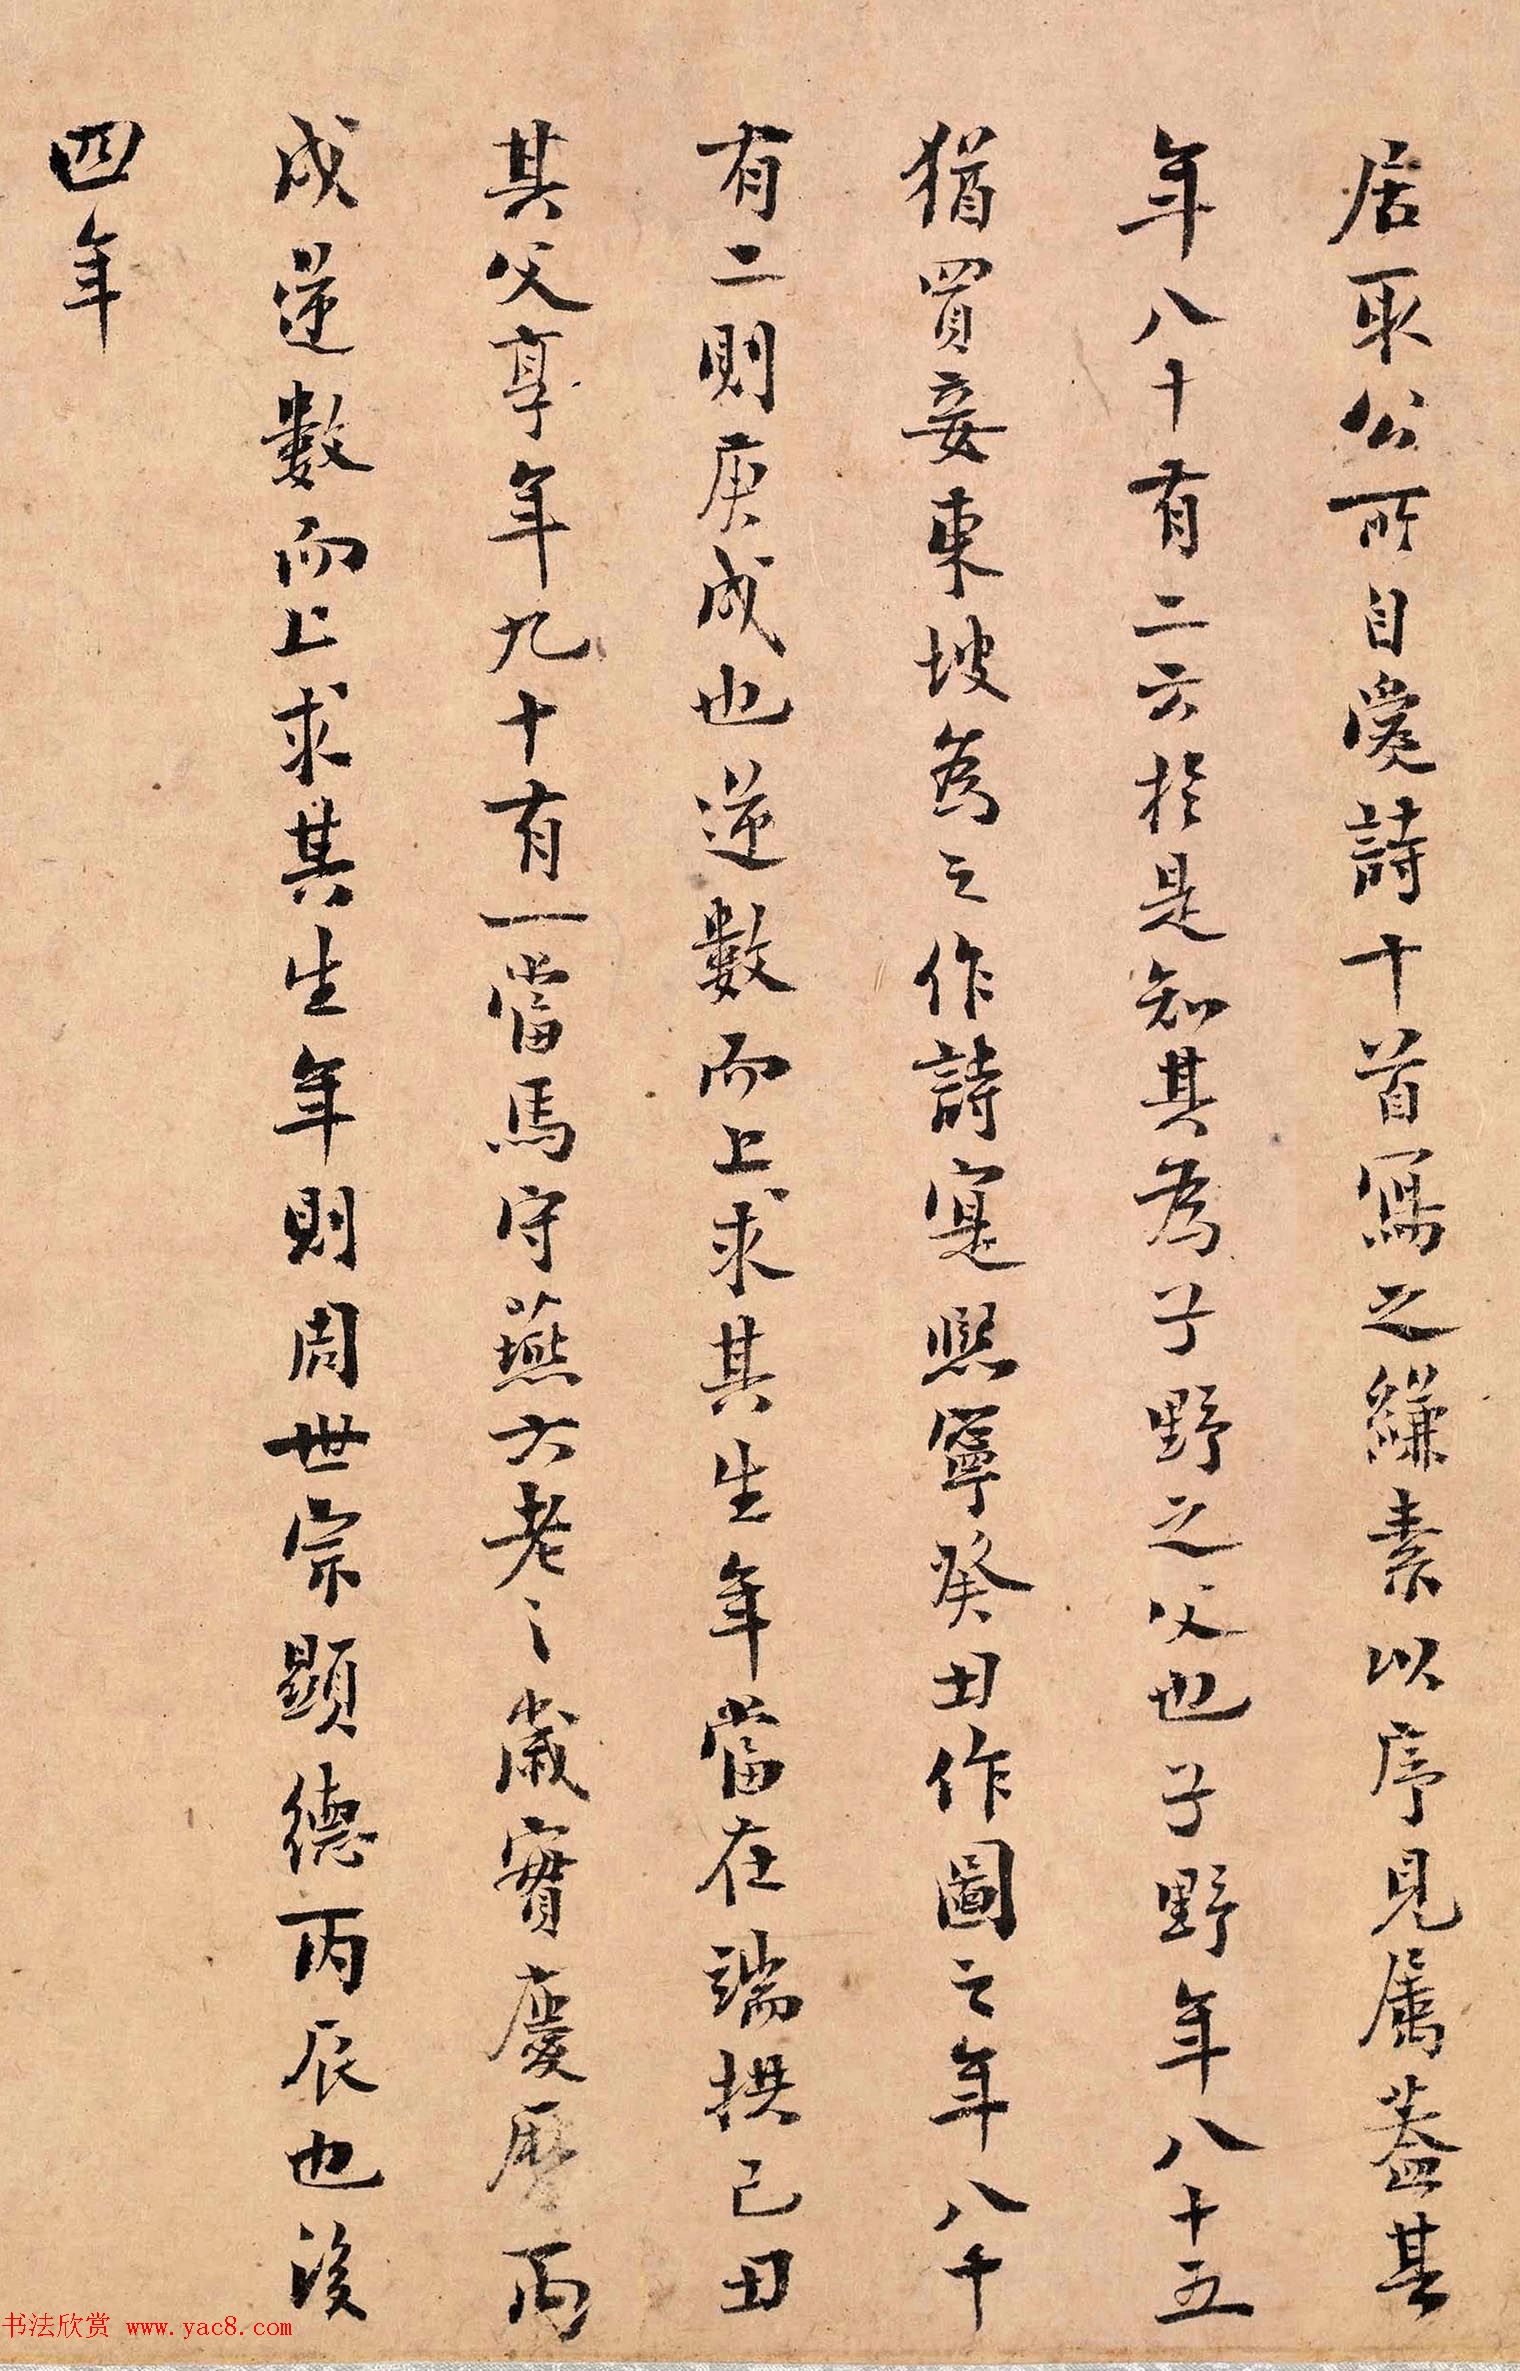 居取公所自愛詩十首寫之縑素以序見屬蓋其
年八十有二云於是知其為子野之父也子野年八十五
猶買妾東坡為之作詩寔熙寧癸丑作圖之年八十
有二則庚戌也逆數而上求其生年當在端拱己丑
其父享年九十有一當馬守燕六老之歲實慶曆丙
戌逆數而上求其生年則周世宗顯德丙辰也後
四年
书法欣赏 www.yac8.com